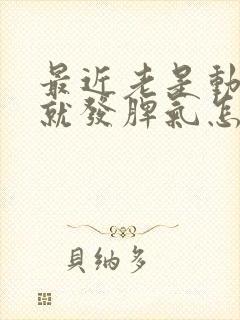 最近老是動
就發脾氣怎
貝納多